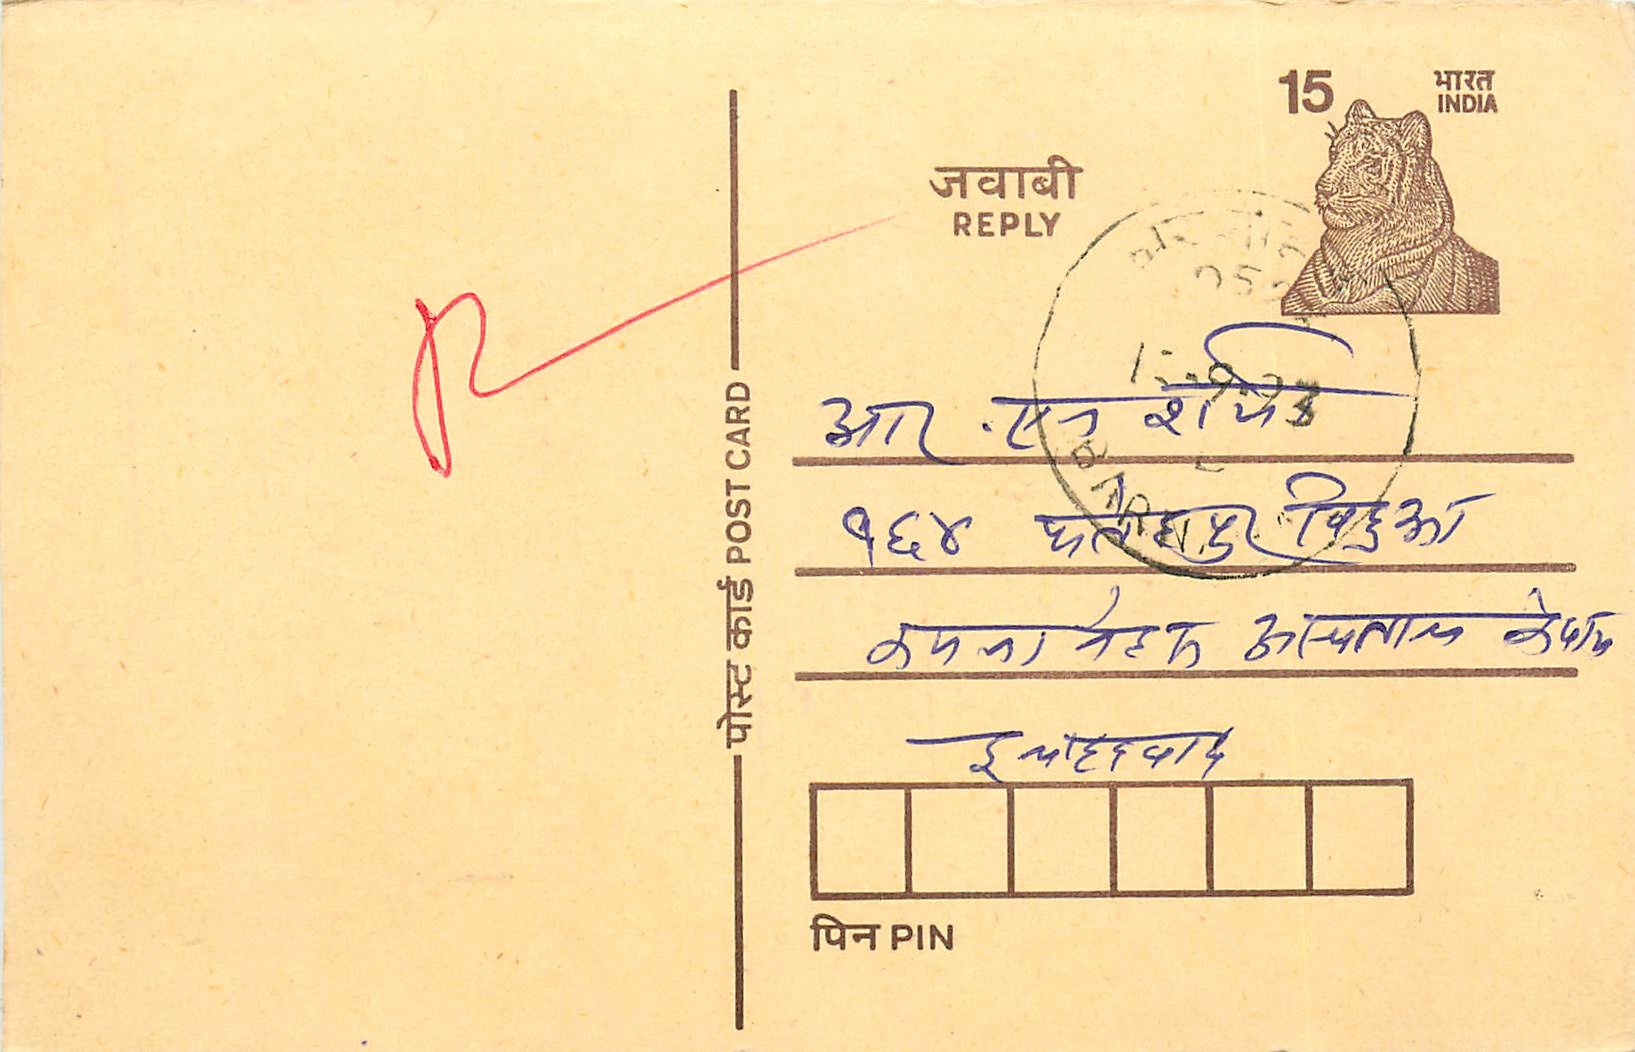 15 भारत
INDIA
जवाबी
REPLY
आर. एन शर्मा
१६४ फतेहपुर बिछुआ
कमला नेहरू अस्पताल के पास
इलाहाबाद
पिन PIN
पोस्ट कार्ड POST CARD